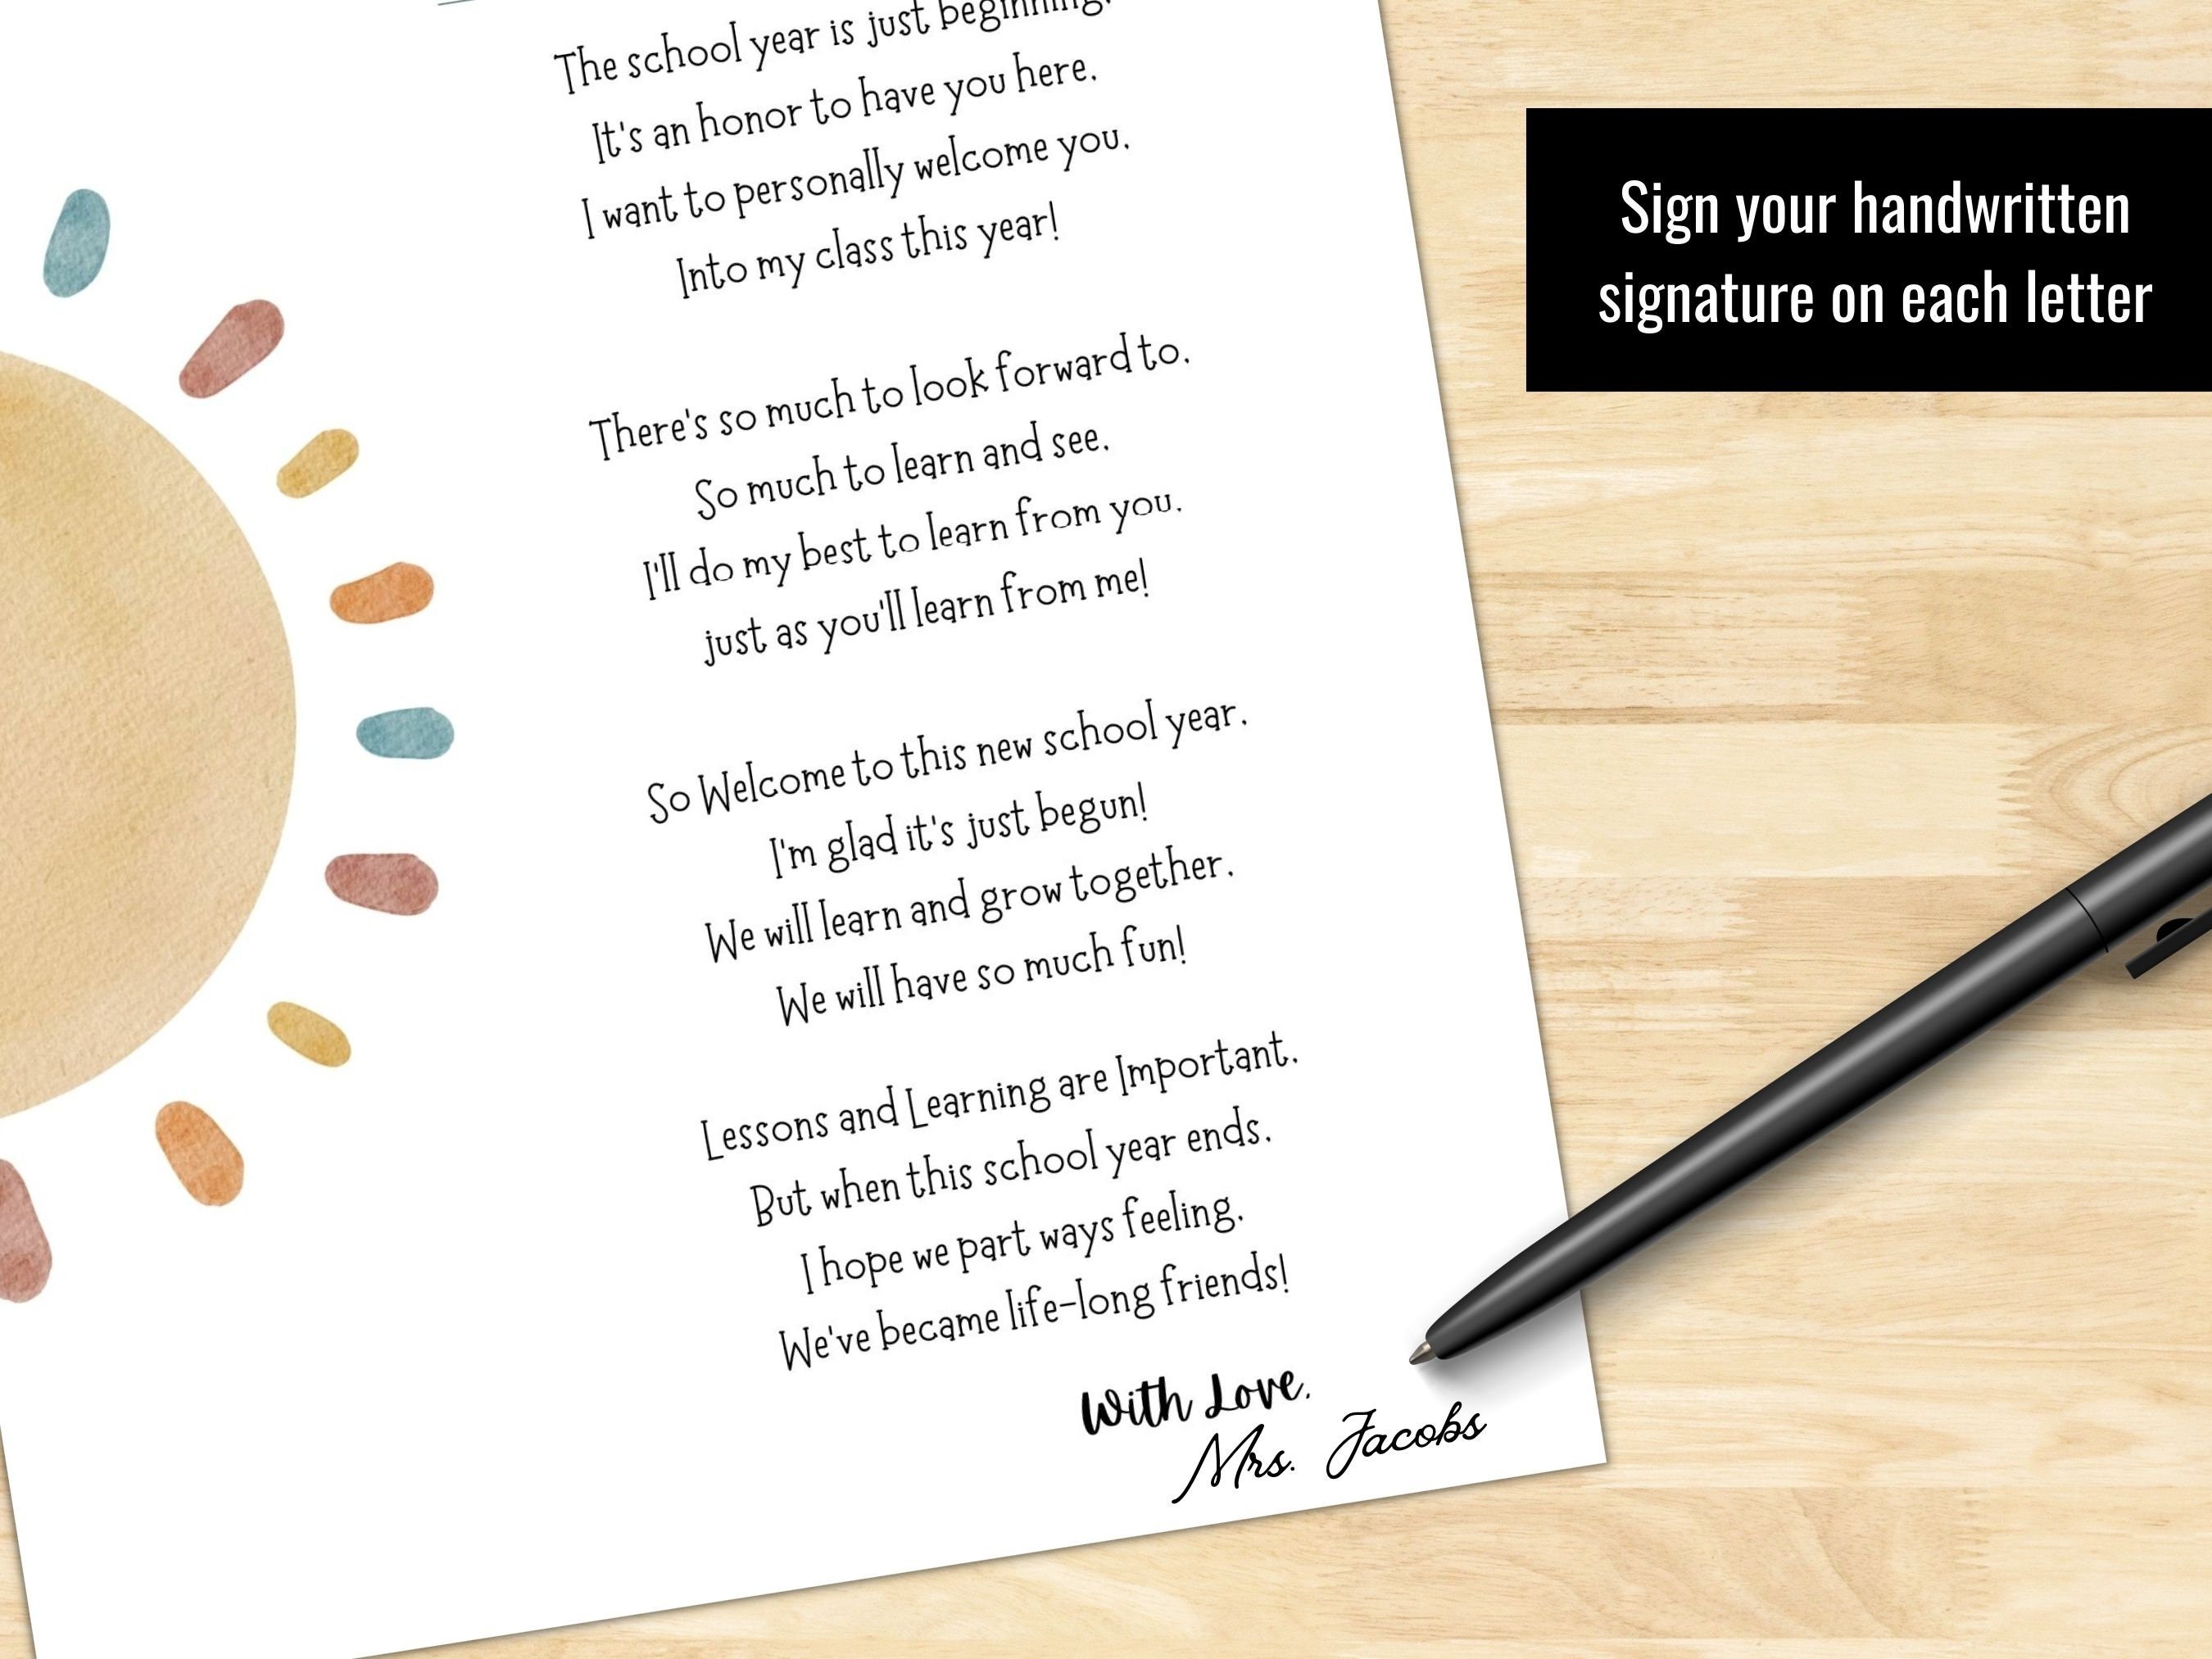 The school year is just beginning.
It's an honor to have you here.
I want to personally welcome you.
Into my class this year!
There's so much to look forward to.
So much to learn and see.
I'll do my best to learn from you.
just as you'll learn from me!
So Welcome to this new school year.
I'm glad it's just begun!
We will learn and grow together.
We will have so much fun!
Lessons and Learning are Important.
But when this school year ends.
I hope we part ways feeling.
We've became life-long friends!
With Love.
Mrs. Jacobs
Sign your handwritten
signature on each letter